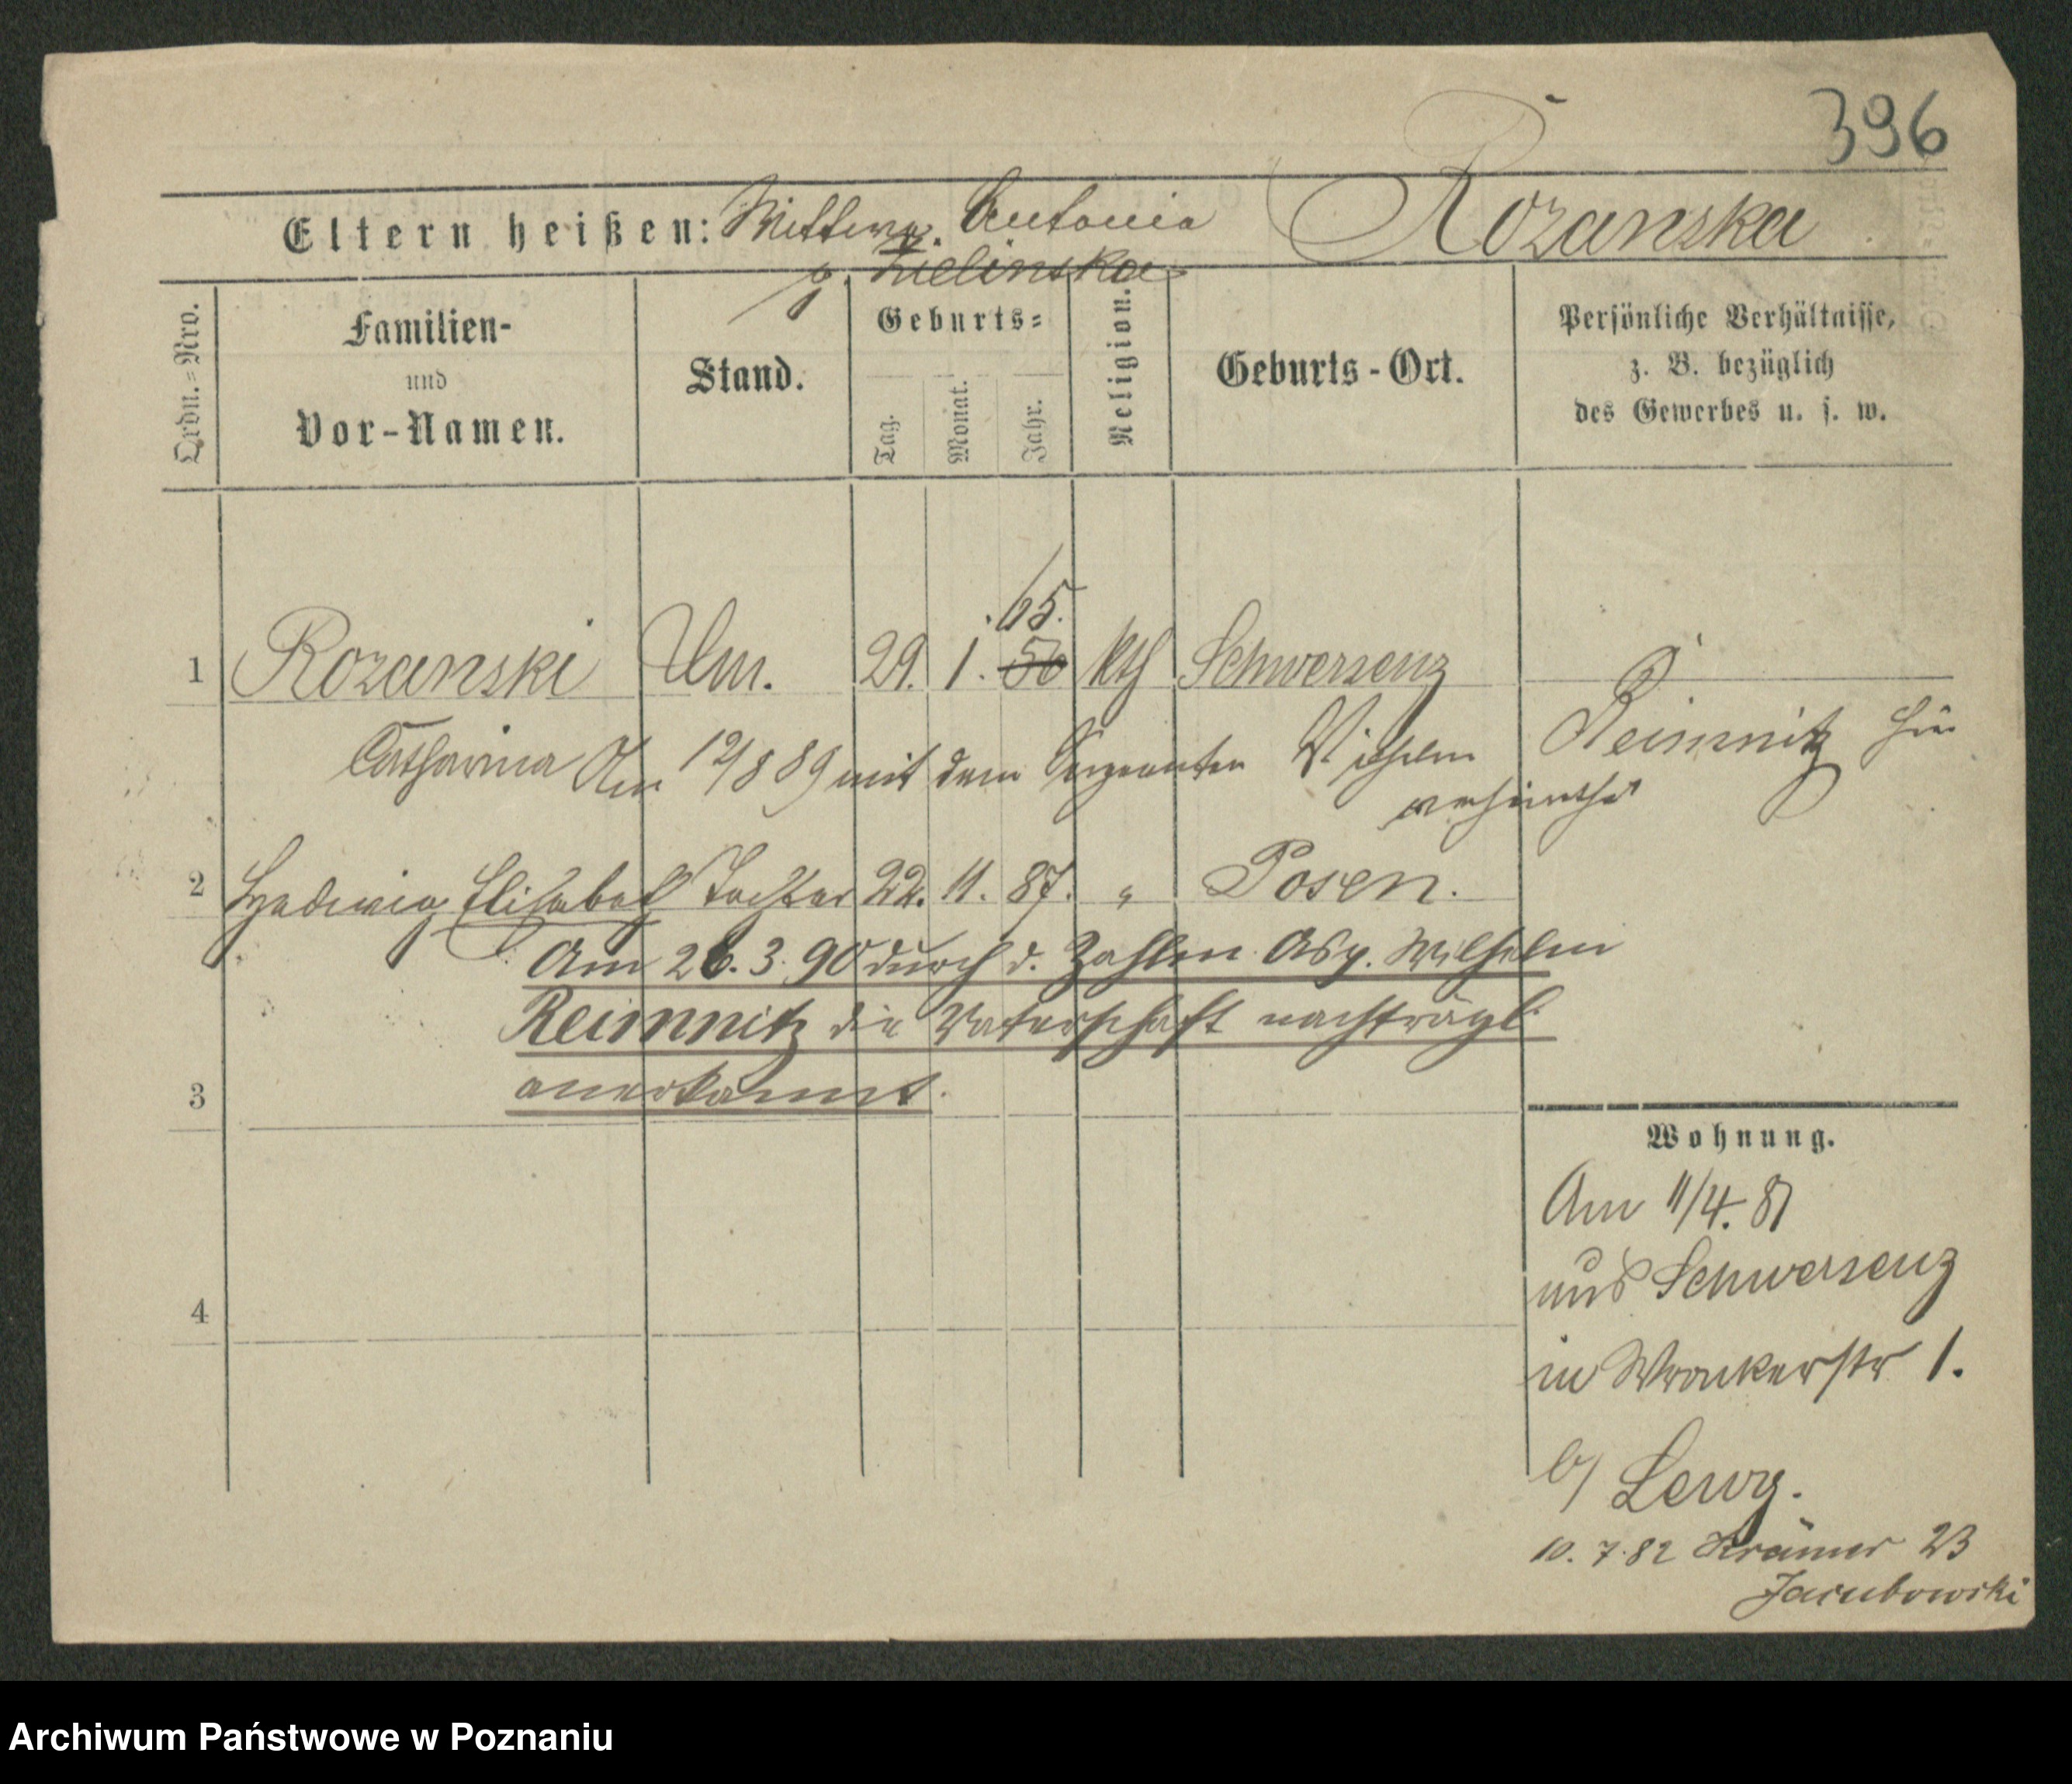 396
Eltern heißen: Wittwe Antonia Rozanska
g. Zielinska
Ordn.=Nro.
Familien-
und
Vor-Namen.
Stand.
Geburts=
Tag.
Monat.
Jahr.
Religion.
Geburts-Ort.
Persönliche Verhältnisse,
z. B. bezüglich
des Gewerbes u. s. w.
65.
1 Rozanski Um. 29. 1. 56 kth Schwersenz
Catharina Am 12/8 89 mit dem Sergeanten Wilhelm Reimnitz hier
verheirathet
2 Hedwig Elisabeth Tochter 22. 11. 87. " Posen.
Am 26. 3. 90 durch d. Zahlm. Asp. Wilhelm
Reimnitz die Vaterschaft nachträgl.
anerkannt.
3
4
Wohnung.
Am 11/4. 81
aus Schwersenz
in Wronkerstr 1.
b/ Lewy.
10. 7. 82 Krämer 23
Jacubowski
Archiwum Państwowe w Poznaniu